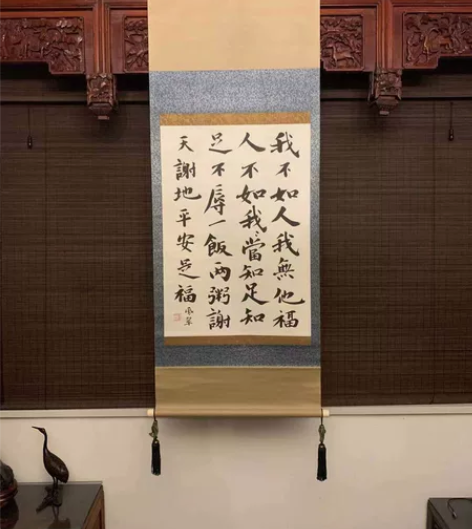 我不如人我無他福
人不如我我當知足知
足不辱一飯兩粥謝
天謝地平安是福